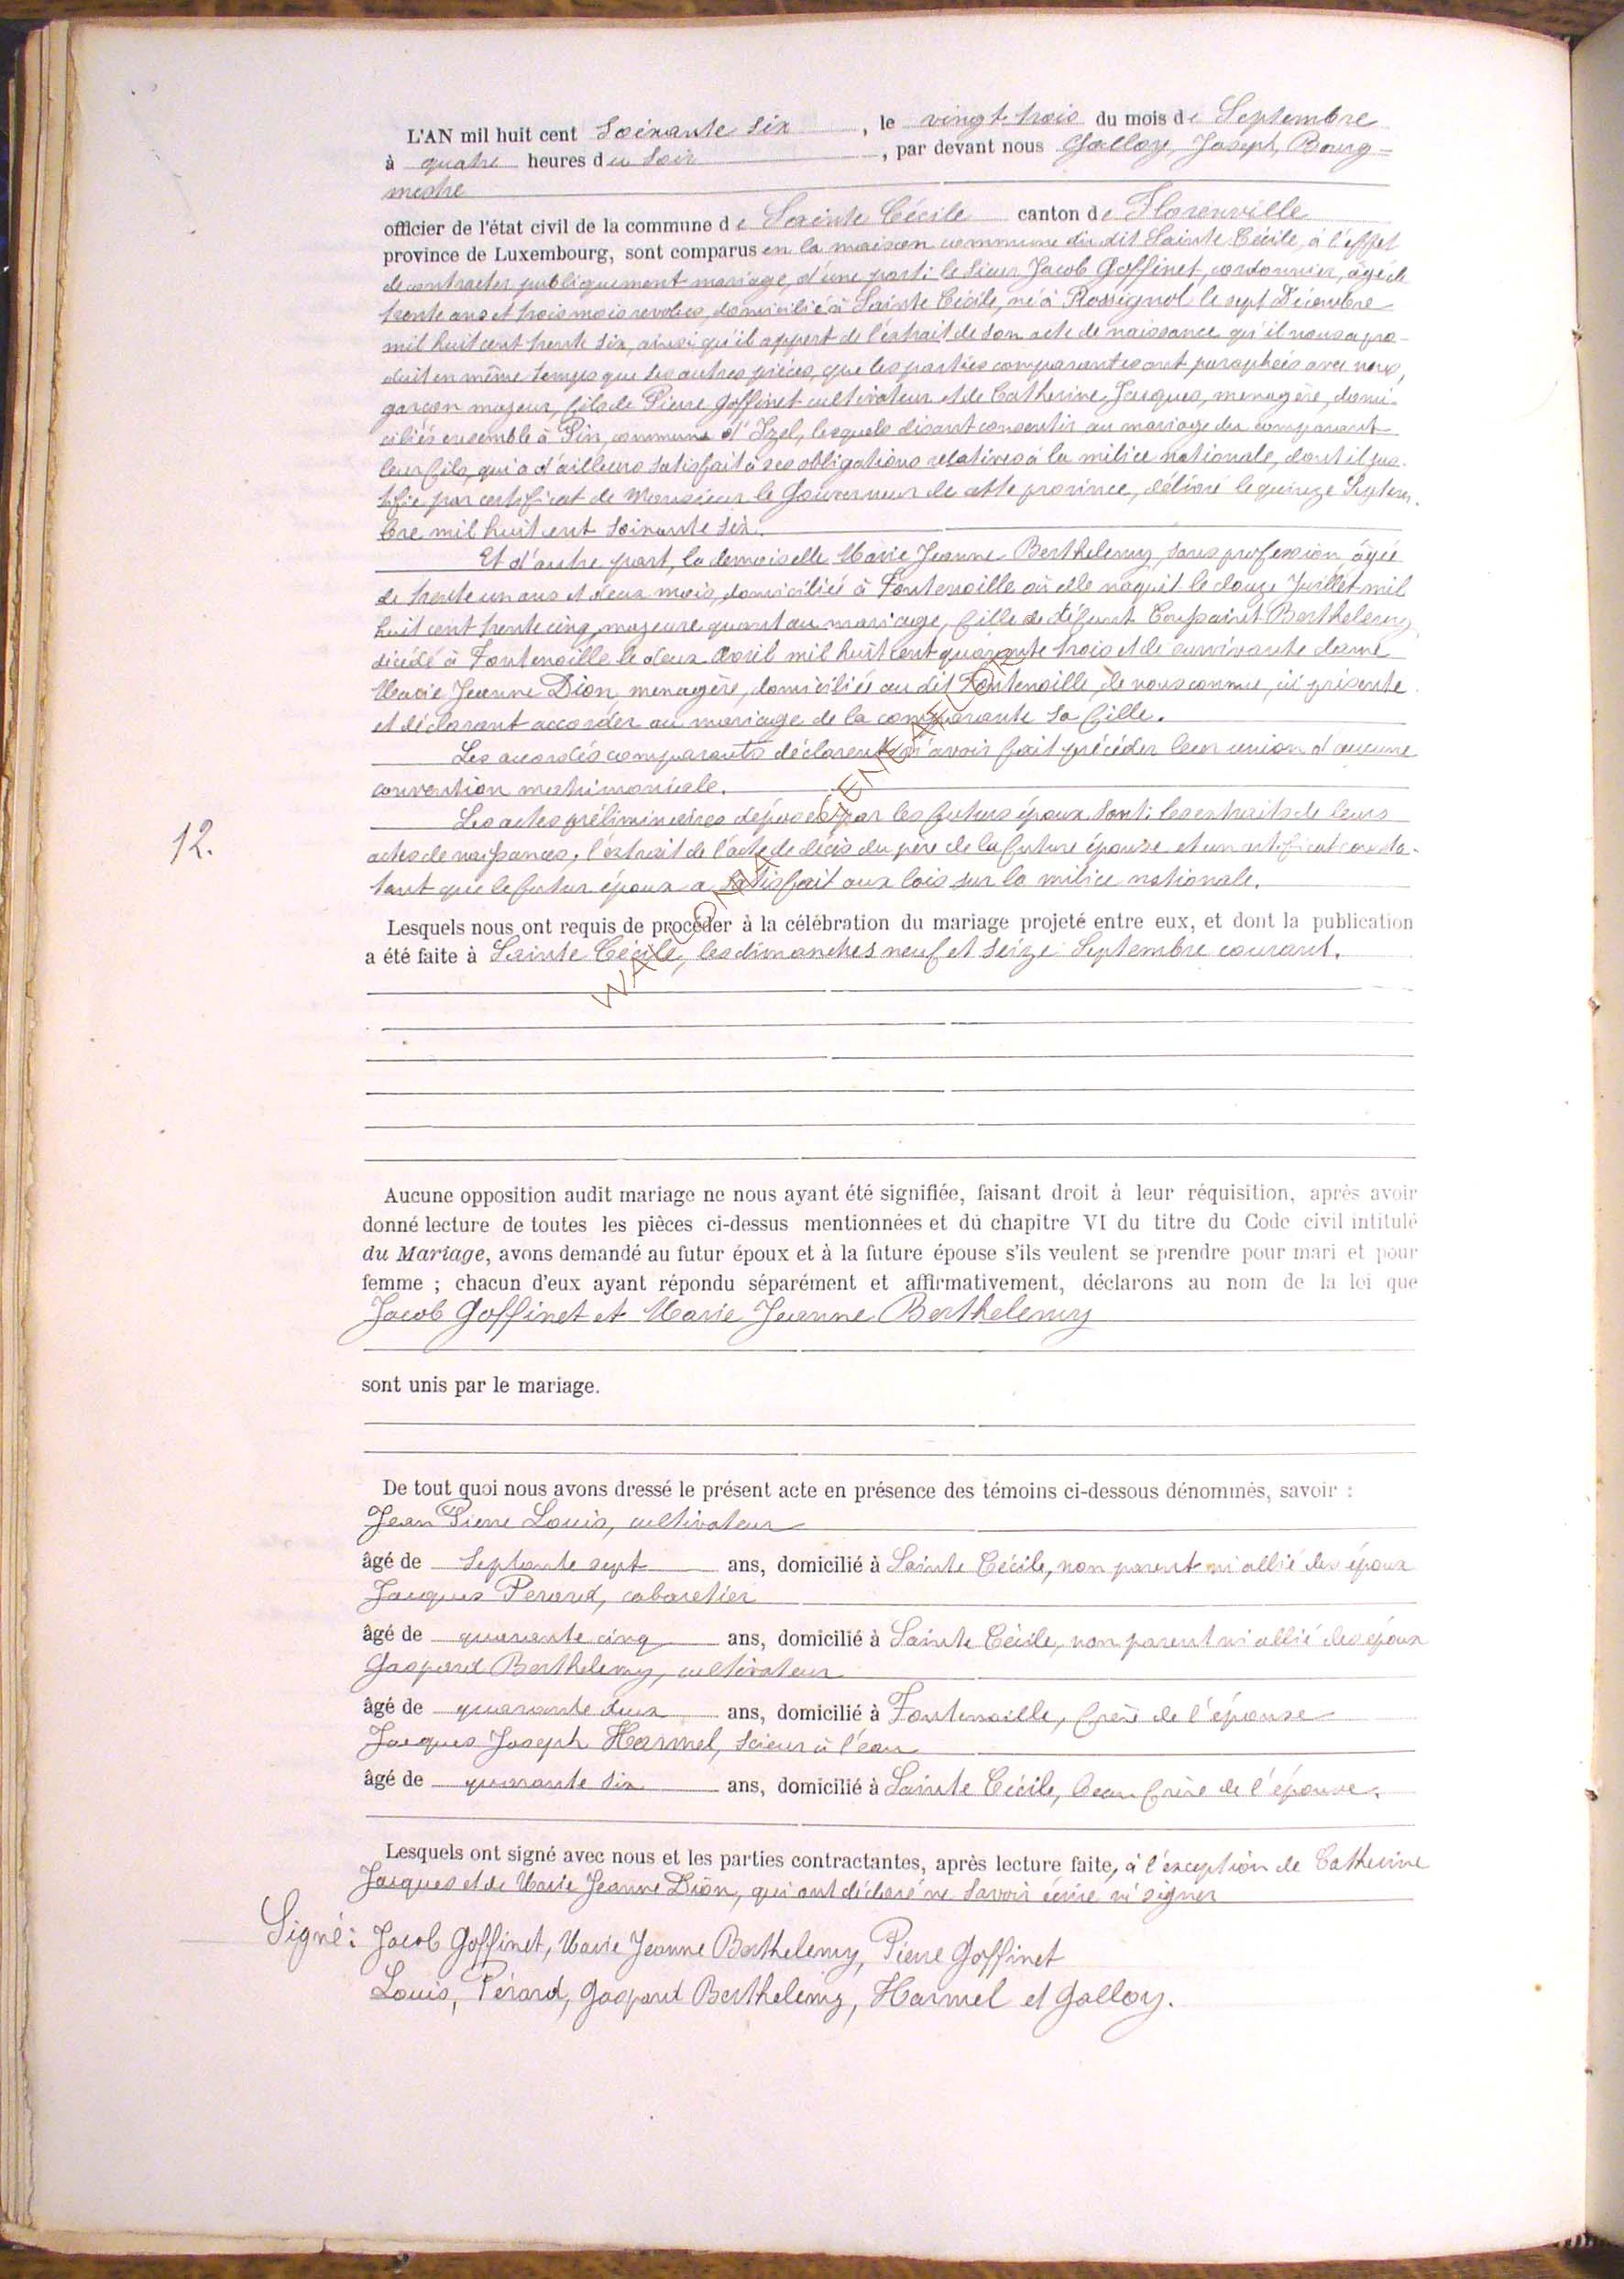 L'AN mil huit cent Soixante Six, le vingt-trois du mois de Septembre
à quatre heures du Soir, par devant nous Galloy, Joseph, Bourg=
mestre
officier de l'état civil de la commune de Sainte Cécile canton de Florenville
province de Luxembourg, sont comparus en la maison commune du dit Sainte Cécile, à l'effet
de contracter publiquement mariage, d'une part: le Sieur Jacob Goffinet, cordonnier, âgé de
trente ans et trois mois revolus, domicilié à Sainte Cécile, né à Rossignol le sept Décembre
mil huit cent trente six, ainsi qu'il appert de l'extrait de son acte de naissance qu'il nous a pro-
duit en même temps que les autres pièces, que les parties comparantes ont paraphées avec nous,
garçon majeur, fils de Pierre Goffinet cultivateur et de Catherine Jacques, menagère, domi-
ciliés ensemble à Pin, commune d'Izel, lesquels disant consentir au mariage du comparant
leur fils, qui a d'ailleurs satisfait à ses obligations relatives à la milice nationale, dont il jus-
tifie par certificat de Monsieur le Gouverneur de cette province, délivré le quinze Septem-
bre mil huit cent soixante six.
Et d'autre part, la demoiselle Marie Jeanne Berthelemy, sans profession, âgée
de trente un ans et deux mois, domiciliée à Fontenoille où elle naquit le douze Juillet mil
huit cent trente cinq, majeure quant au mariage, fille de défunt Berthelemy,
décédé à Fontenoille le deux Avril mil huit cent quarante trois et de survivante dame
Marie Jeanne Dion, menagère, domiciliée au dit Fontenoille, de nous connue, ici présente
et déclarant accorder au mariage de la comparante sa fille.
Les accordés comparants déclarent n'avoir fait précéder leur union d'aucune
convention matrimoniale.
Les actes préliminaires déposés par les futurs époux sont: les extraits de leurs
12.
actes de naissances, l'extrait de l'acte de décès du père de la future épouse et un certificat consta-
tant que le futur époux a satisfait aux lois sur la milice nationale.
Lesquels nous ont requis de procéder à la célébration du mariage projeté entre eux, et dont la publication
a été faite à Sainte Cécile, les dimanches neuf et seize Septembre courant.
Aucune opposition audit mariage ne nous ayant été signifiée, faisant droit à leur réquisition, après avoir
donné lecture de toutes les pièces ci-dessus mentionnées et du chapitre VI du titre du Code civil intitulé
du Mariage, avons demandé au futur époux et à la future épouse s'ils veulent se prendre pour mari et pour
femme ; chacun d'eux ayant répondu séparément et affirmativement, déclarons au nom de la loi que
Jacob Goffinet et Marie Jeanne Berthelemy
sont unis par le mariage.
De tout quoi nous avons dressé le présent acte en présence des témoins ci-dessous dénommés, savoir :
Jean Pierre Louis, cultivateur
âgé de Septante sept ans, domicilié à Sainte Cécile, non parent ni allié des époux
Jacques Perard, cabaretier
âgé de quarante cinq ans, domicilié à Sainte Cécile, non parent ni allié des époux
Gaspard Berthelemy, cultivateur
âgé de quarante deux ans, domicilié à Fontenoille, frère de l'épouse
Jacques Joseph Harmel, scieur à l'eau
âgé de quarante six ans, domicilié à Sainte Cécile, beau frère de l'épouse.
Lesquels ont signé avec nous et les parties contractantes, après lecture faite, à l'exception de Catherine
Jacques et de Marie Jeanne Dion, qui ont déclaré ne savoir écrire ni signer
Signé: Jacob Goffinet, Marie Jeanne Berthelemy, Pierre Goffinet
Louis, Pérard, Gaspard Berthelemy, Harmel et Galloy.